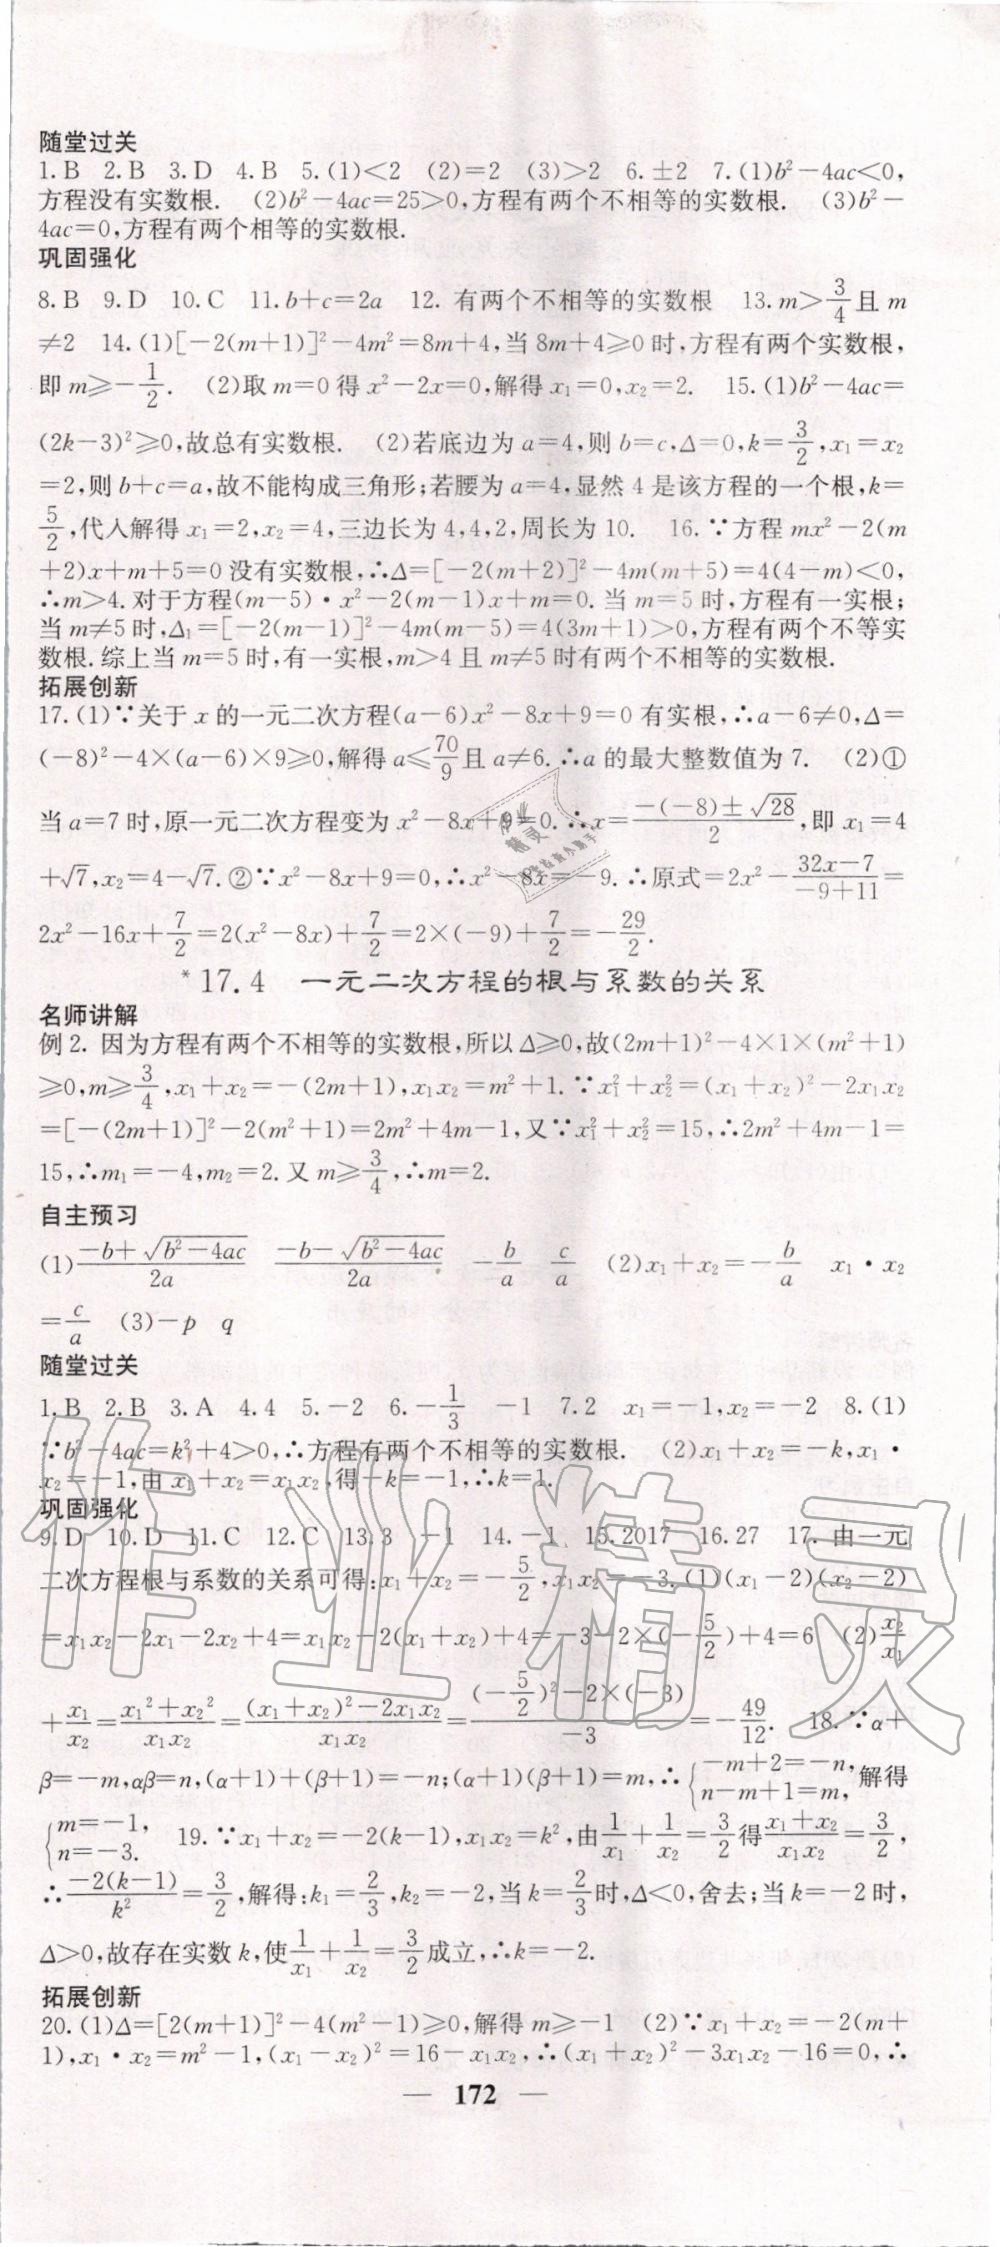 随堂过关
1.B 2.B 3.D 4.B 5.(1)<2 (2)=2 (3)>2 6.±2 7.(1)b²-4ac<0,
方程没有实数根. (2)b²-4ac=25>0,方程有两个不相等的实数根. (3)b²-
4ac=0,方程有两个相等的实数根.
巩固强化
8.B 9.D 10.C 11.b+c=2a 12. 有两个不相等的实数根 13.m>3/4且m
≠2 14.(1)[-2(m+1)]²-4m²=8m+4,当8m+4≥0时,方程有两个实数根,
即m≥-1/2. (2)取m=0得x²-2x=0,解得x₁=0,x₂=2. 15.(1)b²-4ac=
(2k-3)²≥0,故总有实数根. (2)若底边为a=4,则b=c,Δ=0,k=3/2,x₁=x₂
=2,则b+c=a,故不能构成三角形;若腰为a=4,显然4是该方程的一个根,k=
5/2,代入解得x₁=2,x₂=4,三边长为4,4,2,周长为10. 16.∵方程mx²-2(m
+2)x+m+5=0没有实数根,∴Δ=[-2(m+2)]²-4m(m+5)=4(4-m)<0,
∴m>4.对于方程(m-5)·x²-2(m-1)x+m=0.当m=5时,方程有一实根;
当m≠5时,Δ₁=[-2(m-1)]²-4m(m-5)=4(3m+1)>0,方程有两个不等实
数根.综上当m=5时,有一实根,m>4且m≠5时有两个不相等的实数根.
拓展创新
17.(1)∵关于x的一元二次方程(a-6)x²-8x+9=0有实根,∴a-6≠0,Δ=
(-8)²-4×(a-6)×9≥0,解得a≤70/9且a≠6.∴a的最大整数值为7. (2)①
当a=7时,原一元二次方程变为x²-8x+9=0.∴x=(-(-8)±√28)/2,即x₁=4
+√7,x₂=4-√7.②∵x²-8x+9=0,∴x²-8x=-9.∴原式=2x²-(32x-7)/(-9+11)=
2x²-16x+7/2=2(x²-8x)+7/2=2×(-9)+7/2=-29/2.
*17.4 一元二次方程的根与系数的关系
名师讲解
例2. 因为方程有两个不相等的实数根,所以Δ≥0,故(2m+1)²-4×1×(m²+1)
≥0,m≥3/4,x₁+x₂=-(2m+1),x₁x₂=m²+1.∵x₁²+x₂²=(x₁+x₂)²-2x₁x₂
=[-(2m+1)]²-2(m²+1)=2m²+4m-1,又∵x₁²+x₂²=15,∴2m²+4m-1=
15,∴m₁=-4,m₂=2.又m≥3/4,∴m=2.
自主预习
(1)(-b+√(b²-4ac))/2a (-b-√(b²-4ac))/2a -b/a c/a (2)x₁+x₂=-b/a x₁·x₂
=c/a (3)-p q
随堂过关
1.B 2.B 3.A 4.4 5.-2 6.-1/3 -1 7.2 x₁=-1,x₂=-2 8.(1)
∵b²-4ac=k²+4>0,∴方程有两个不相等的实数根. (2)x₁+x₂=-k,x₁·
x₂=-1,由x₁+x₂=x₁x₂,得-k=-1,∴k=1.
巩固强化
9.D 10.D 11.C 12.C 13.3 -1 14.-1 15.2017 16.27 17. 由一元
二次方程根与系数的关系可得:x₁+x₂=-5/2,x₁x₂=-3.(1)(x₁-2)(x₂-2)
=x₁x₂-2x₁-2x₂+4=x₁x₂-2(x₁+x₂)+4=-3-2×(-5/2)+4=6 (2)x₂/x₁
+x₁/x₂=(x₁²+x₂²)/x₁x₂=((x₁+x₂)²-2x₁x₂)/x₁x₂=((-5/2)²-2×(-3))/-3=-49/12. 18.∵α+
β=-m,αβ=n,(α+1)+(β+1)=-n;(α+1)(β+1)=m,∴{-m+2=-n, n-m+1=m, 解得
{m=-1, n=-3. 19.∵x₁+x₂=-2(k-1),x₁x₂=k²,由1/x₁+1/x₂=3/2得(x₁+x₂)/x₁x₂=3/2,
∴-2(k-1)/k²=3/2,解得:k₁=2/3,k₂=-2,当k=2/3时,Δ<0,舍去;当k=-2时,
Δ>0,故存在实数k,使1/x₁+1/x₂=3/2成立,∴k=-2.
拓展创新
20.(1)Δ=[2(m+1)]²-4(m²-1)≥0,解得m≥-1 (2)∵x₁+x₂=-2(m+
1),x₁·x₂=m²-1,(x₁-x₂)²=16-x₁x₂,∴(x₁+x₂)²-3x₁x₂-16=0,∴
— 172 —
作业精灵